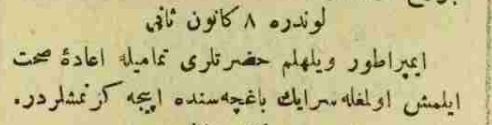 لوندره ٨ كانون ثانی
ايمپراطور ويلهلم حضرتلری تماميله اعادهٔ صحت
ايلمش اولمغله سرايك باغچه سنده اييجه كزنمشلردر.